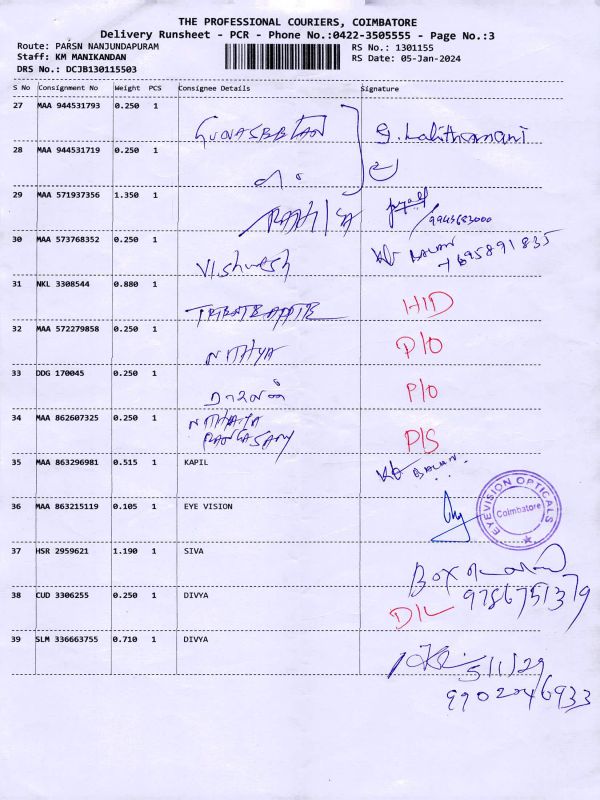 THE PROFESSIONAL COURIERS, COIMBATORE
Delivery Runsheet - PCR - Phone No.:0422-3505555 - Page No.:3
Route: PARSN NANJUNDAPURAM
RS No.: 1301155
Staff: KM MANIKANDAN
RS Date: 05-Jan-2024
DRS No.: DCJB130115503
S No Consignment No Weight PCS Consignee Details Signature
27 MAA 944531793 0.250 1
G. Lalithamani
28 MAA 944531719 0.250 1
29 MAA 571937356 1.350 1
30 MAA 573768352 0.250 1 Vishwesh
BALAN
31 NKL 3308544 0.880 1 HID
32 MAA 572279858 0.250 1 NITHYA P/O
33 DDG 170045 0.250 1 P/O
34 MAA 862607325 0.250 1 P/S
35 MAA 863296981 0.515 1 KAPIL BALAN
36 MAA 863215119 0.105 1 EYE VISION
EYEVISION OPTICALS
Coimbatore
37 HSR 2959621 1.190 1 SIVA
BOX
9786751379
38 CUD 3306255 0.250 1 DIVYA D/L
39 SLM 336663755 0.710 1 DIVYA
9902046933